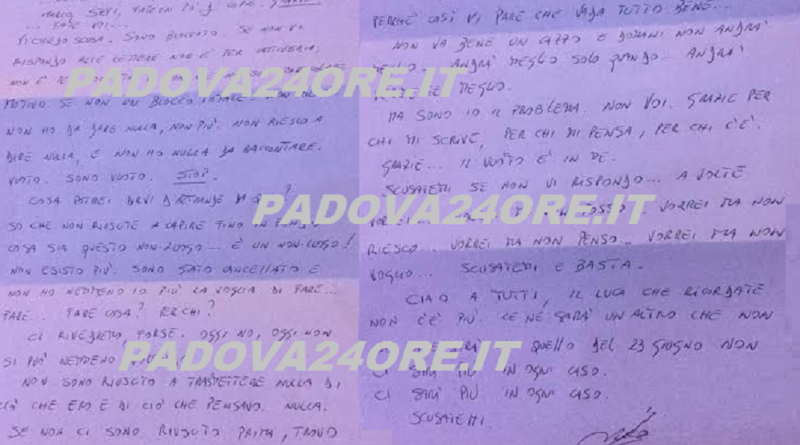 VI CHIEDO SCUSA. SONO BLOCCATO. SE NON VI
RISPONDO ALLE LETTERE NON È PER CATTIVERIA,
NON È
PADOVA24ORE.IT
MOTIVO SE NON UN BLOCCO TOTALE
NON HO DA DARE NULLA, NON PIÙ. NON RIESCO A
DIRE NULLA, E NON HO NULLA DA RACCONTARE.
VUOTO. SONO VUOTO. STOP.
COSA POTREI DIRVI D'ALTRONDE DA QUI?
SO CHE NON RIUSCITE A CAPIRE FINO IN FONDO
COSA SIA QUESTO NON-LUOGO... È UN NON-LUOGO!
NON ESISTO PIÙ. SONO STATO CANCELLATO E
NON HO NEMMENO IO PIÙ LA VOGLIA DI FARE...
FARE... FARE COSA? PER CHI?
CI RIVEDREMO, FORSE. OGGI NO, OGGI NON
SI PUÒ NEMMENO
PADOVA24ORE.IT
NON SONO RIUSCITO A TRASMETTERE NULLA DI
CIÒ CHE ERO E DI CIÒ CHE PENSAVO. NULLA.
SE NON CI SONO RIUSCITO PRIMA, TROVO
PERCHÈ COSÌ VI PARE CHE VADA TUTTO BENE...
NON VA BENE UN CAZZO E DOMANI NON ANDRÀ
MEGLIO. ANDRÀ MEGLIO SOLO QUANDO... ANDRÀ
MEGLIO.
MA SONO IO IL PROBLEMA. NON VOI. GRAZIE PER
CHI MI SCRIVE, PER CHI MI PENSA, PER CHI C'È.
GRAZIE... IL VUOTO È IN ME.
SCUSATEMI SE NON VI RISPONDO... A VOLTE
PADOVA24ORE.IT
VORREI NON POSSO... VORREI MA NON
RIESCO... VORREI MA NON PENSO... VORREI MA NON
VOGLIO... SCUSATEMI E BASTA.
CIAO A TUTTI, IL LUCA CHE RICORDATE
NON C'È PIÙ. CE NE SARÀ UN ALTRO CHE NON
QUELLO DEL 23 GIUGNO NON
CI SARÀ PIÙ IN OGNI CASO.
CI SARÀ PIÙ IN OGNI CASO.
SCUSATEMI.